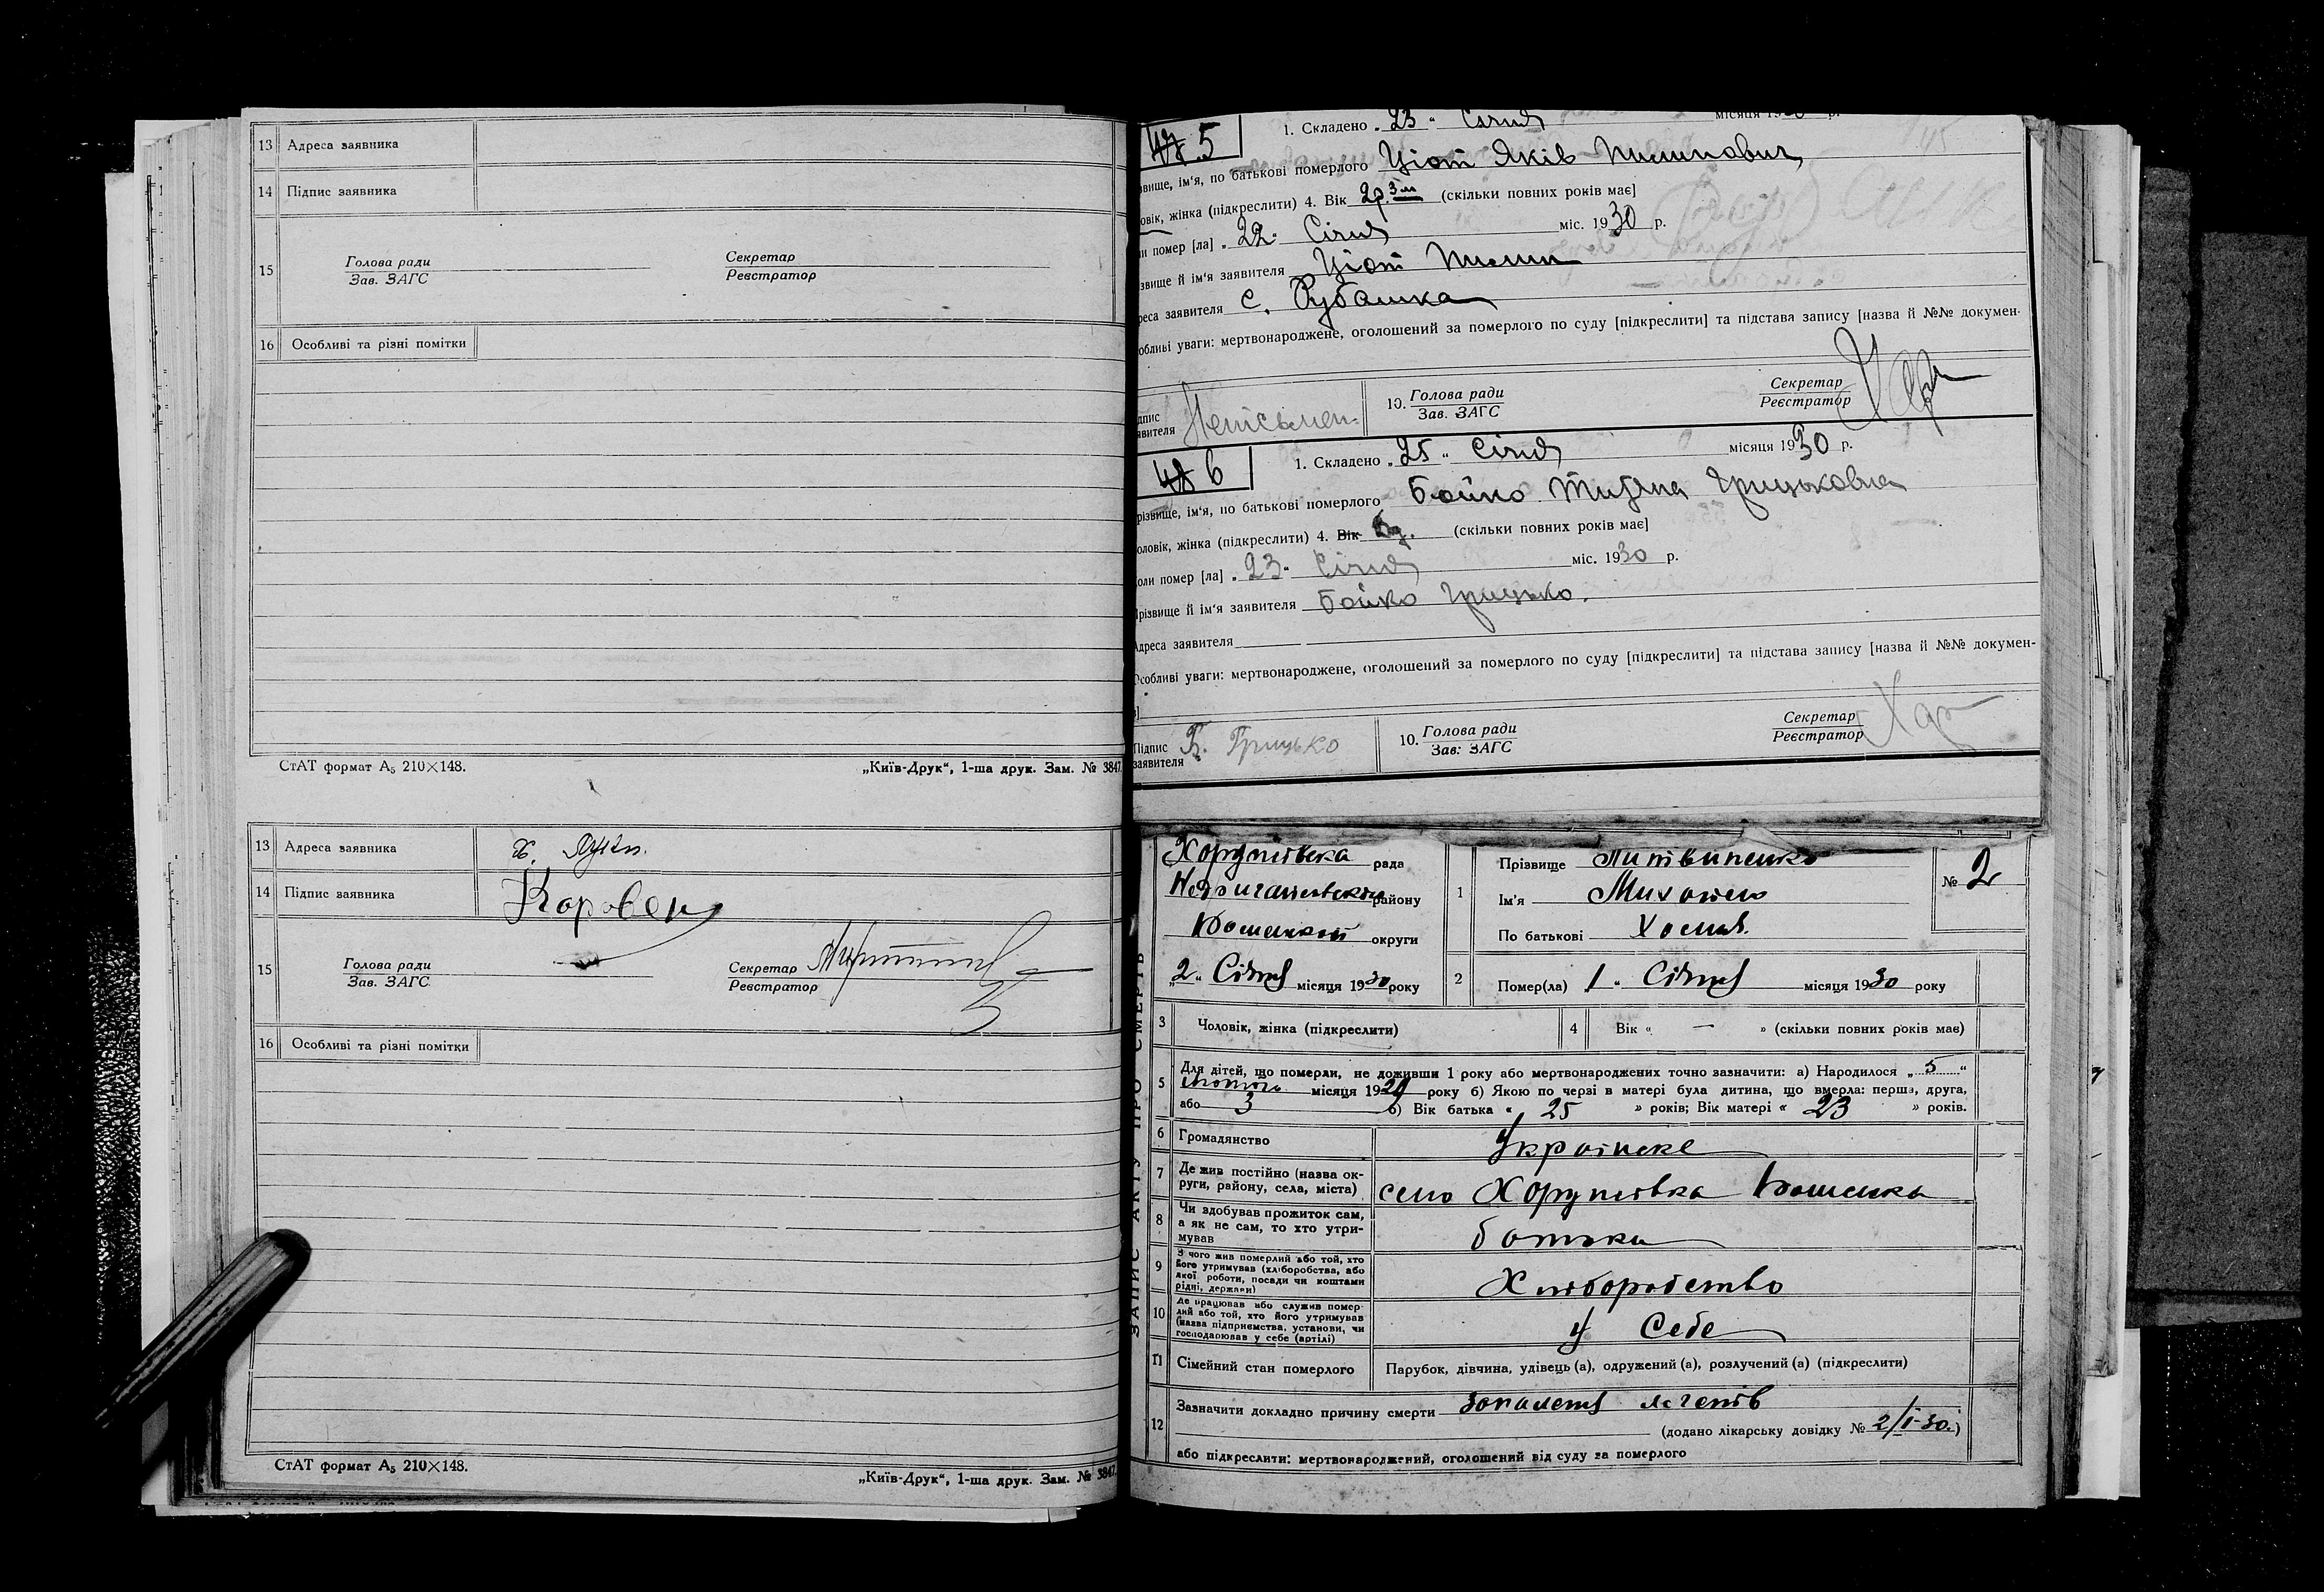 13 Адреса заявника
14 Підпис заявника
15 Голова ради
Зав. ЗАГС
Секретар
Реєстратор
16 Особливі та різні помітки
СтАТ формат А5 210×148.
„Київ-Друк“, 1-ша друк. Зам. № 3847.
13 Адреса заявника х.
14 Підпис заявника
15 Голова ради
Зав. ЗАГС
Секретар
Реєстратор
16 Особливі та різні помітки
СтАТ формат А5 210×148.
„Київ-Друк“, 1-ша друк. Зам. № 3847.
5
1. Складено „23“ Січня місяця 1930 р.
звище, ім‘я, по батькові померлого Уіот Яків Пилипович
овік, жінка (підкреслити) 4. Вік 2р. 3м (скільки повних років має]
ли помер [ла] „22“ Січня міс. 1930 р.
звище й ім‘я заявителя Уіот Пилип
реса заявителя с. Рубашка
обливі уваги: мертвонароджене, оголошений за померлого по суду [підкреслити] та підстава запису [назва й №№ докумен-
дпис
явителя
Неписьмен.
10. Голова ради
Зав. ЗАГС
Секретар
Реєстратор
6
1. Складено „25“ Січня місяця 1930 р.
різвище, ім‘я, по батькові померлого Бойко Грицьковна
оловік, жінка (підкреслити) 4. Вік (скільки повних років має]
оли помер [ла] „23“ Січня міс. 1930 р.
Прізвище й ім‘я заявителя Бойко Грицько.
Адреса заявителя
Особливі уваги: мертвонароджене, оголошений за померлого по суду [підкреслити] та підстава запису [назва й №№ докумен-
Підпис
заявителя
Грицько
10. Голова ради
Зав: ЗАГС
Секретар
Реєстратор
ЗАПИС АКТУ ПРО СМЕРТЬ
Хоружівська рада
Недригайлівського району
округи
„2“ Січня місяця 1930 року
1 Прізвище Литвиненко
Ім'я Михайло
По батькові Хомов.
№ 2
2 Помер(ла) 1 „ Січня місяця 1930 року
3 Чоловік, жінка (підкреслити)
4 Вік « — » (скільки повних років має)
5 Для дітей, що померли, не доживши 1 року або мертвонароджених точно зазначити: а) Народилося „5“
лютого місяця 1929 року б) Якою по черзі в матері була дитина, що вмерла: перша, друга,
або 3 в) Вік батька « 25 » років; Вік матері « 23 » років.
6 Громадянство Українське
7 Де жив постійно (назва ок-
руги, району, села, міста) село Хоружівка
8 Чи здобував прожиток сам,
а як не сам, то хто утри-
мував
батько
9 З чого жив померлий або той, хто
його утримував (хліборобства, або
якої роботи, посади чи коштами
рідні, держави)
Хліборобство
10 Де працював або служив помер-
лий або той, хто його утримував
(назва підприємства, установи, чи
господарював у себе (артілі)
У Себе
11 Сімейний стан померлого Парубок, дівчина, удівець (а), одружений (а), розлучений (а) (підкреслити)
12 Зазначити докладно причину смерти Запалення легенів
(додано лікарську довідку № 2/I-30.)
або підкреслити: мертвонароджений, оголошений від суду за померлого